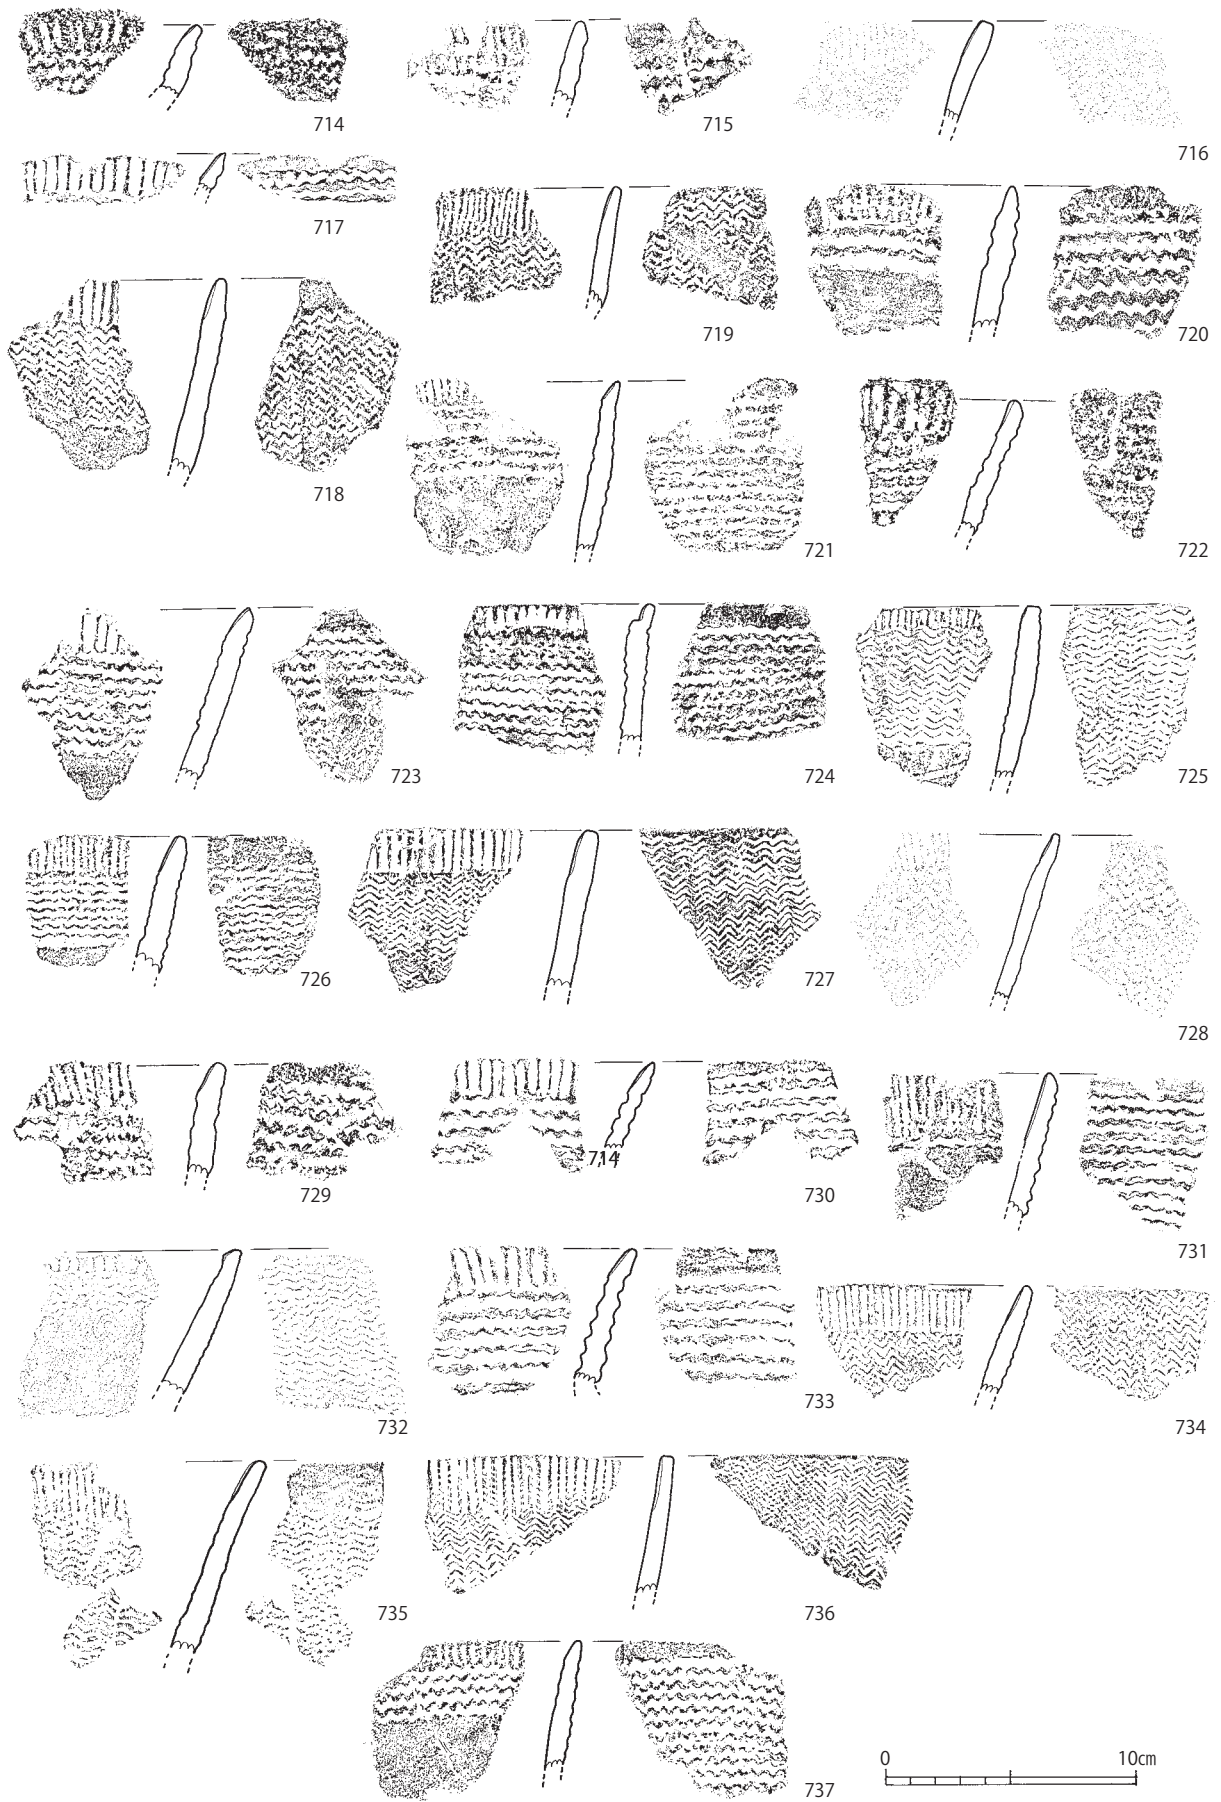 714
715
716
717
718
719
720
721
722
723
724
725
726
727
728
729
714
730
731
732
733
734
735
736
737
0 10cm